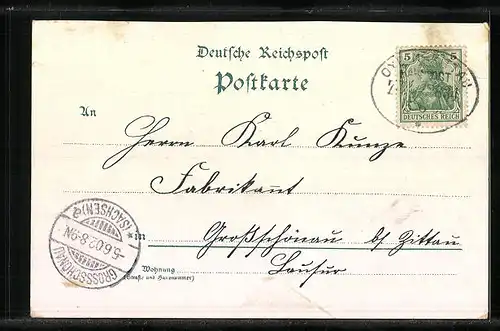 Deutsche Reichspost
Postkarte
5
DEUTSCHES REICH
An
Herrn Karl Kunze
Fabrikant
in Großschönau b/ Zittau
Wohnung
(Straße und Hausnummer)
GROSSSCHÖNAU
5.6.02.8-9N
(SACHSEN)